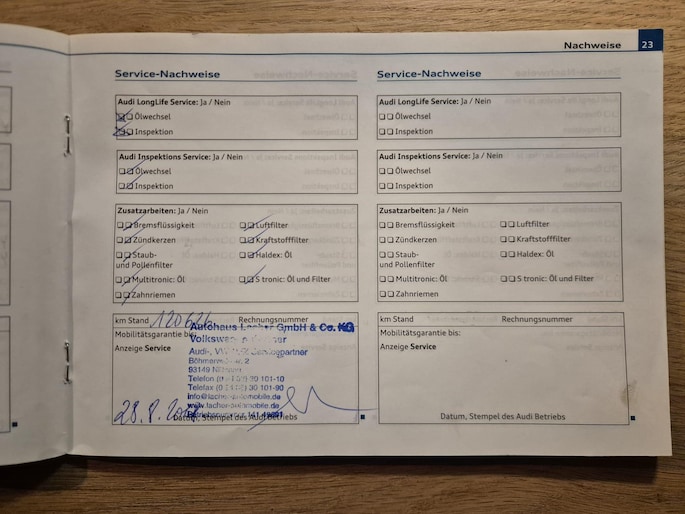 Nachweise 23
Service-Nachweise
Audi LongLife Service: Ja / Nein
Ölwechsel
Inspektion
Audi Inspektions Service: Ja / Nein
Ölwechsel
Inspektion
Zusatzarbeiten: Ja / Nein
Bremsflüssigkeit Luftfilter
Zündkerzen Kraftstofffilter
Staub- Haldex: Öl
und Pollenfilter
Multitronic: Öl S tronic: Öl und Filter
Zahnriemen
km Stand Rechnungsnummer
Mobilitätsgarantie bis:
Anzeige Service
Autohaus Lacher GmbH & Co. KG
93149
Telefon 30 101-10
Telefax 30 101-90
28.8.
Datum, Stempel des Audi Betriebs
Service-Nachweise
Audi LongLife Service: Ja / Nein
Ölwechsel
Inspektion
Audi Inspektions Service: Ja / Nein
Ölwechsel
Inspektion
Zusatzarbeiten: Ja / Nein
Bremsflüssigkeit Luftfilter
Zündkerzen Kraftstofffilter
Staub- Haldex: Öl
und Pollenfilter
Multitronic: Öl S tronic: Öl und Filter
Zahnriemen
km Stand Rechnungsnummer
Mobilitätsgarantie bis:
Anzeige Service
Datum, Stempel des Audi Betriebs